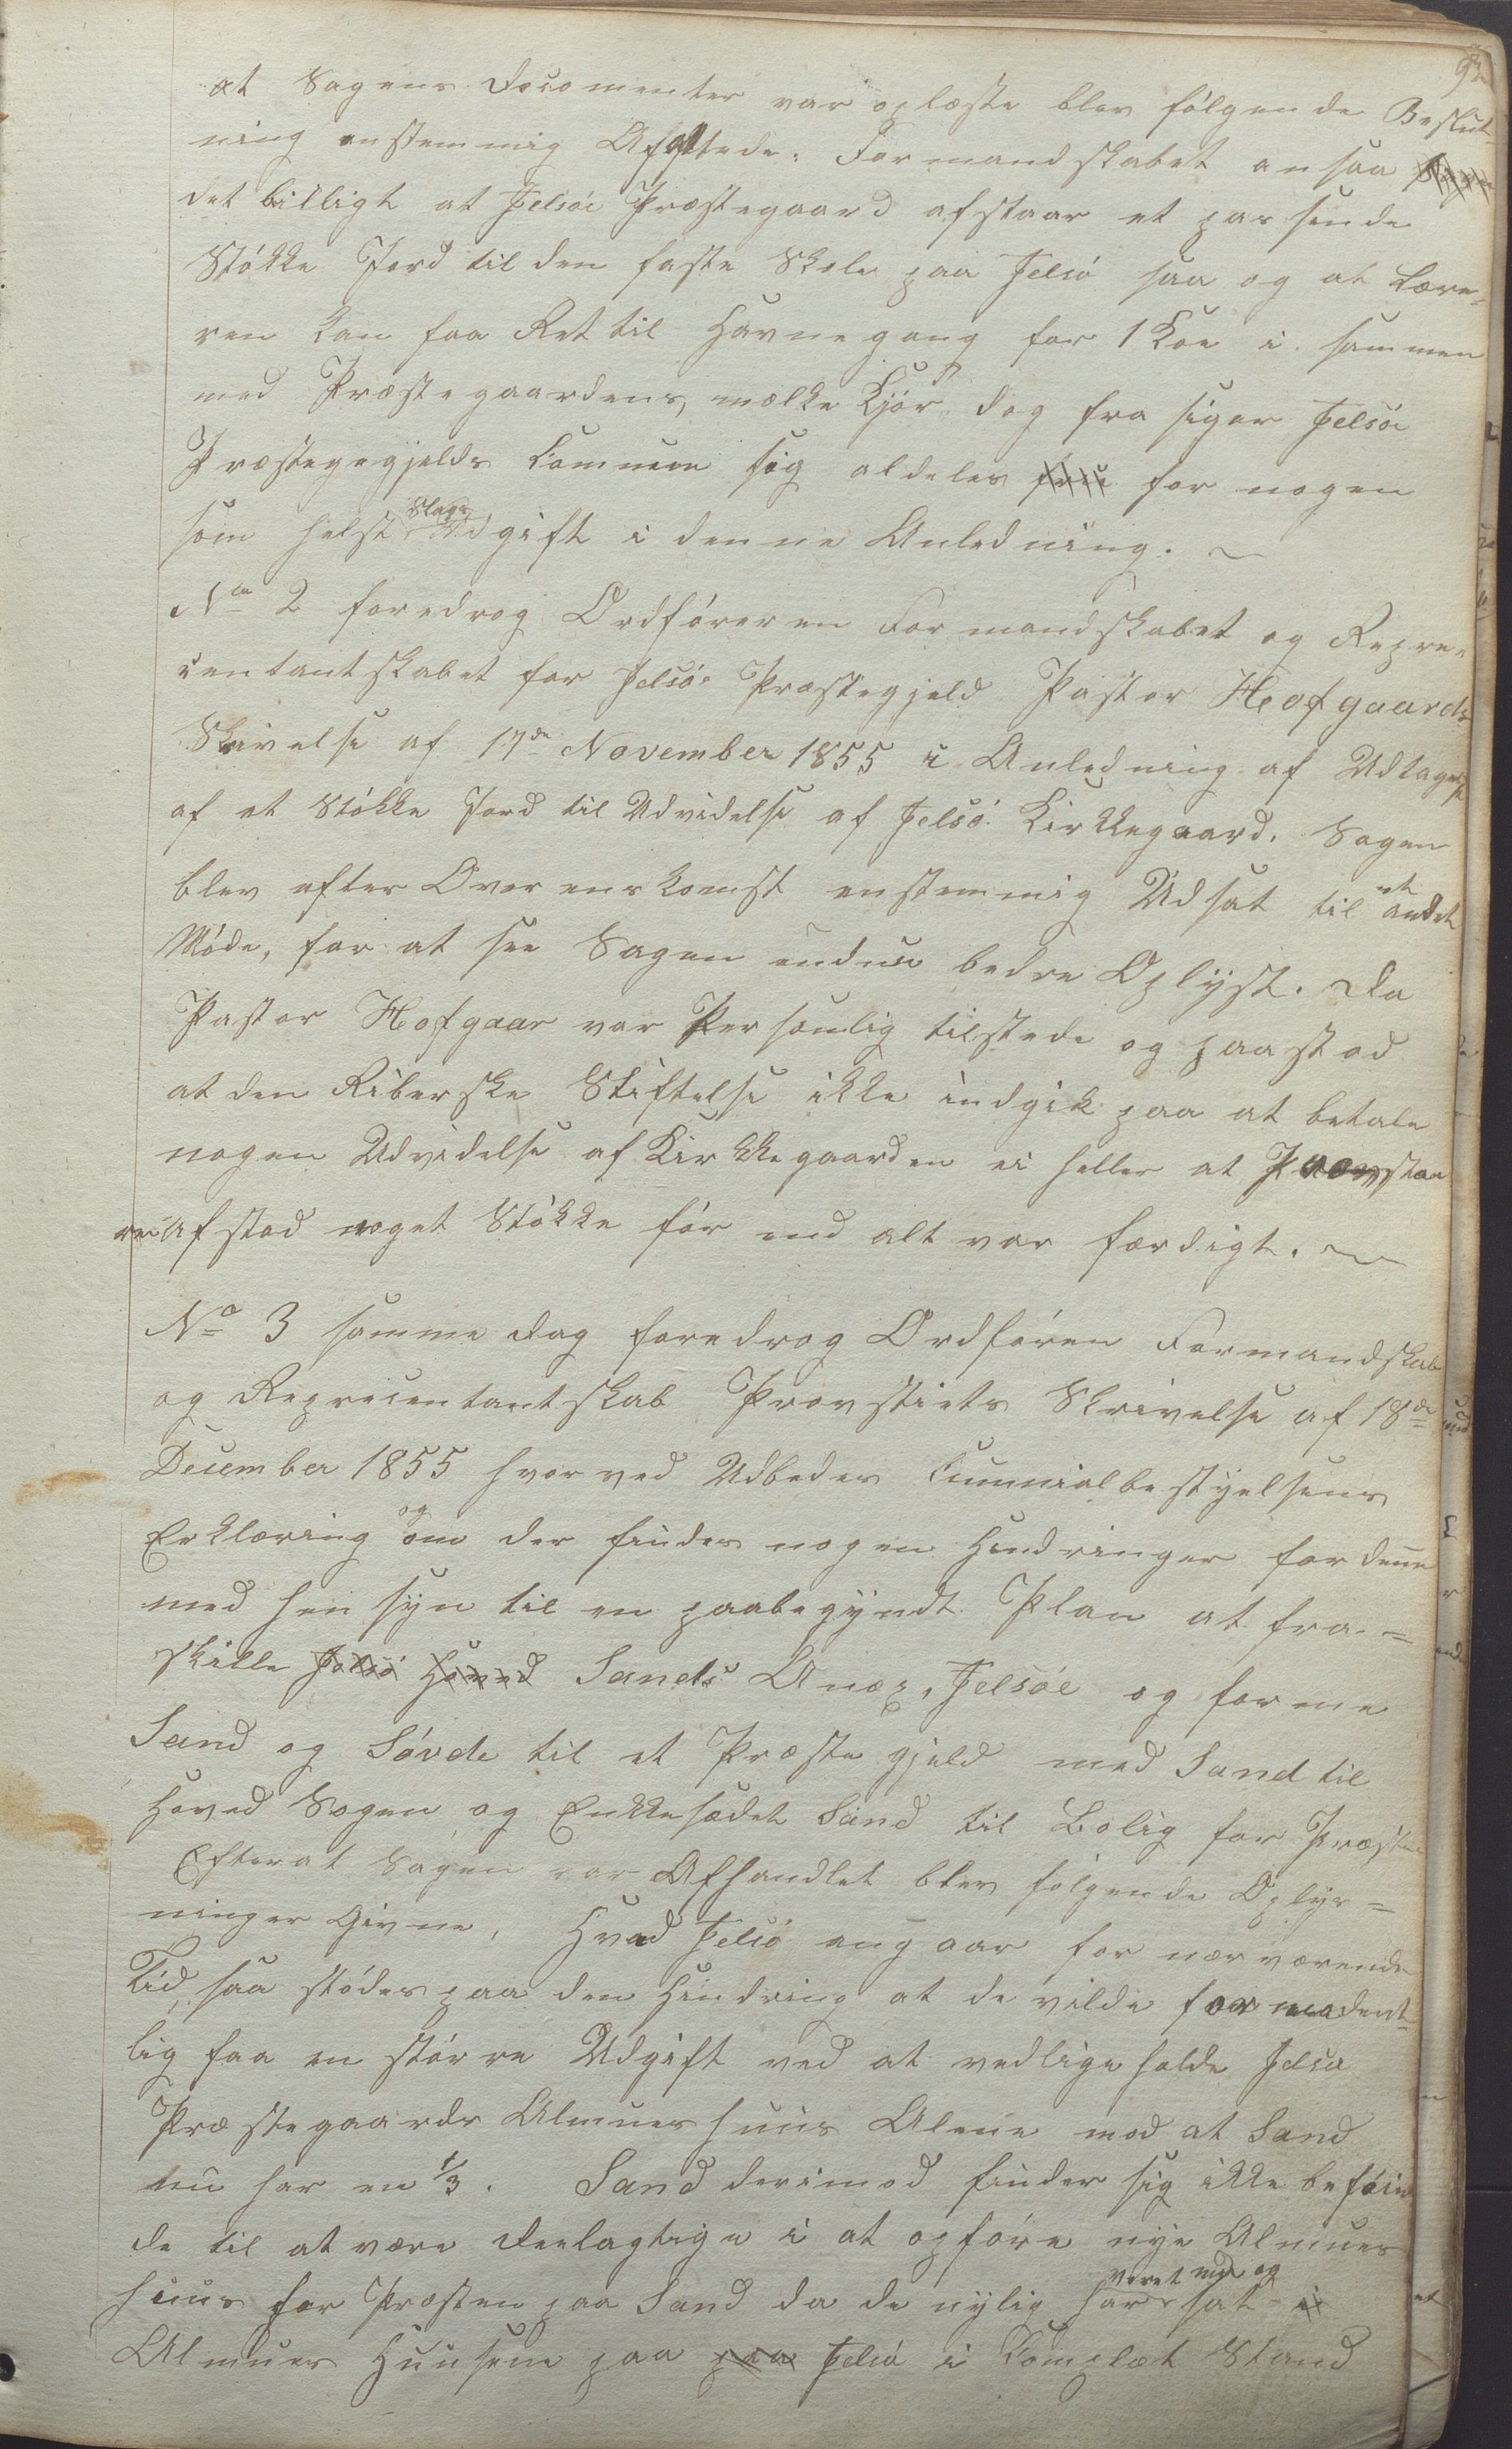 at Sagens Documenter var oplæste blev følgende Beslut-
ning enstemmig Afattede. Formandskabet ansaa
det billigt at Jelsøe Præstegaard afstaar et passende
Støkke Jord til den faste Skole paa Jelsø saa og at Lære-
ren kan faa Ret til Havnegang for 1 Koe i sammen
med Præstegaardens, melke Kjør, dog fra siger Jelsøe
Præstegegjelds Commun sig aldeles for nogen
som helst Slags Udgift i denne Anledning.
No 2 foredrog Ordføreren Formandskabet og Repre-
centantskabet for Jelsø Præstegjeld Pastor Hofgaards
Skrivelse af 17de November 1855 i Anledning af Udtagelse
af et Støkke Jord til Udvidelse af Jelsø Kirkkegaard. Sagen
blev efter Overenskomst enstemmig Udsat til et andet
Møde, for at see Sagen endnu bedre Oplyst. Da
Pastor Hofgaar var Personlig tilstede og paastod
at den Riberske Stiftelse ikke indgik paa at betale
nogen Udvidelse af Kirkkegaarden ei heller at
Afstod noget Støkke før end alt var færdigt.
No 3 samme Dag foredrog Ordføren Formandskab
og Reprecentantskab Provstiets Skrivelse af 18de
December 1855 hvorved Udbedes Cumnialbestyelsens
Erklæring og om der findes nogen Hindringer for denne
med hensyn til en paabegyndt Plan at fra-
skille Jelsø Hoved Sands Anex, Jelsøe og forme
Sand og Søvde til et Præstegjeld med Sand til
Hoved Sogen og Enkkesædet Sand til Bolig for Præsten
Efterat Sagen var Afhandlet blev følgende Oplys-
ninger Givne, Hvad Jelsø angaar for nærværende
Tid, saa stødes paa den Hindring at de vilde formodent-
lig faa en større Udgift ved at vedligeholde Jelsø
Præstegaards Almues huus Alene mod at Sand
nu har en 1/3. Sand derimod finder sig ikke beføie
de til at være deelagtige i at opføre nye Almues
huus for Præsten paa Sand da de nylig har veret med og sat
Almues Huusene paa paa Jelsø i Complet Stand